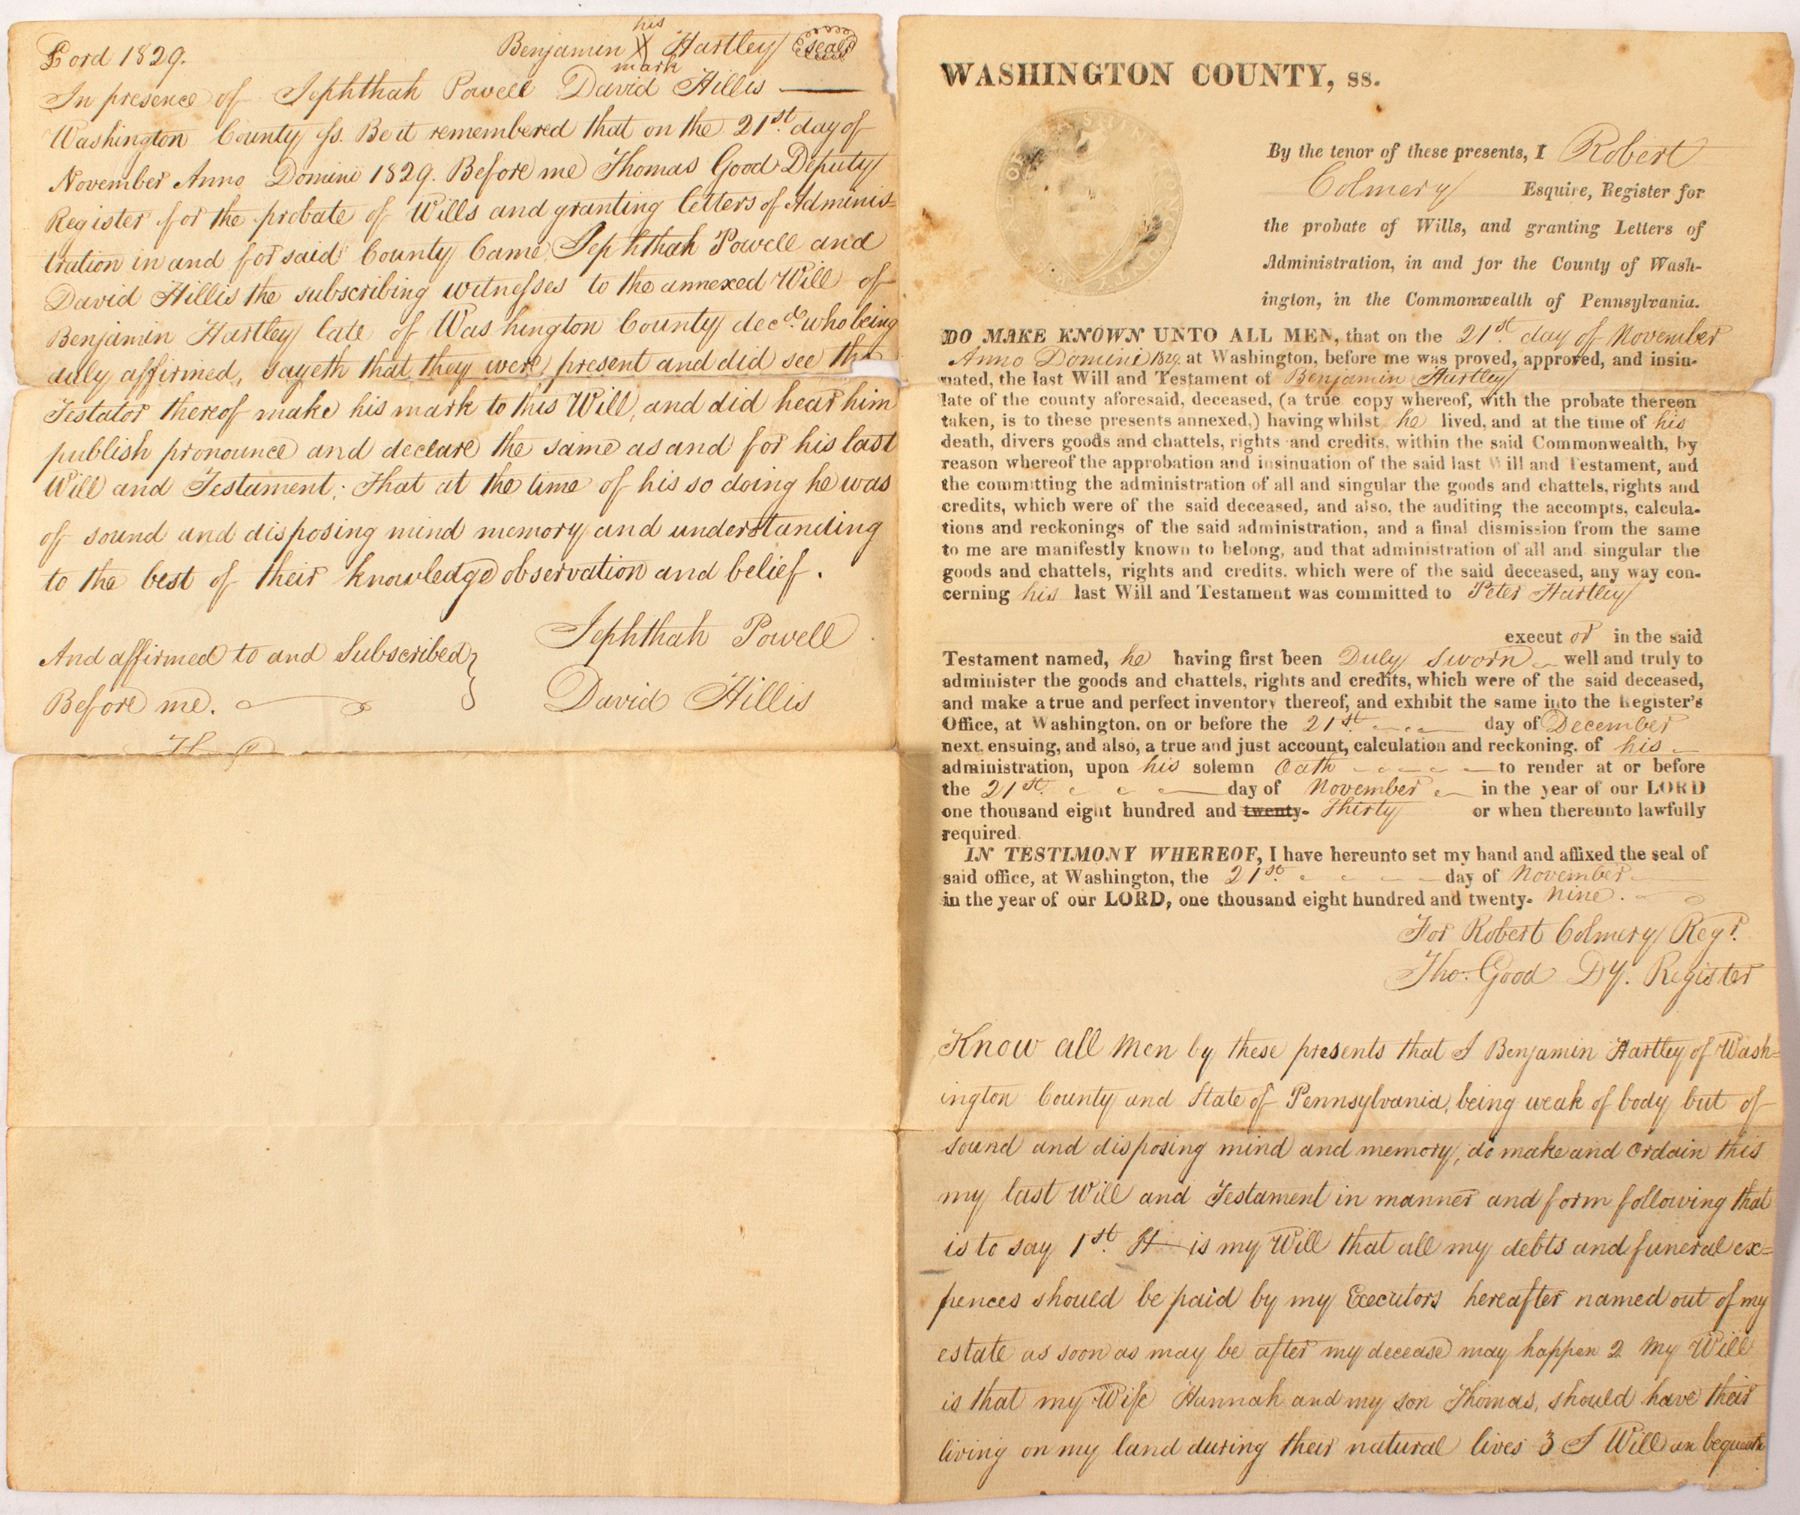 Lord 1829.
Benjamin his X mark Hartley seal
In presence of Jephthah Powell David Hillis
Washington County ss. Be it remembered that on the 21st. day of
November Anno Domini 1829. Before me Thomas Good Deputy
Register for the probate of Wills and granting letters of Adminis=
tration in and for said County Came Jephthah Powell and
David Hillis the subscribing witnesses to the annexed Will of
Benjamin Hartley late of Washington County decd. who being
duly affirmed, sayeth that they were present and did see the
Testator thereof make his mark to this Will, and did hear him
publish pronounce and declare the same as and for his last
Will and Testament; That at the time of his so doing he was
of sound and disposing mind memory and understanding
to the best of their knowledge observation and belief.
And affirmed to and Subscribed }
Before me.
Jephthah Powell
David Hillis
WASHINGTON COUNTY, ss.
By the tenor of these presents, I Robert
Colmery Esquire, Register for
the probate of Wills, and granting Letters of
Administration, in and for the County of Wash-
ington, in the Commonwealth of Pennsylvania.
DO MAKE KNOWN UNTO ALL MEN, that on the 21st. day of November
Anno Domini 1829. at Washington, before me was proved, approved, and insin-
uated, the last Will and Testament of Benjamin Hartley
late of the county aforesaid, deceased, (a true copy whereof, with the probate thereon
taken, is to these presents annexed,) having whilst he lived, and at the time of his
death, divers goods and chattels, rights and credits, within the said Commonwealth, by
reason whereof the approbation and insinuation of the said last Will and Testament, and
the committing the administration of all and singular the goods and chattels, rights and
credits, which were of the said deceased, and also, the auditing the accompts, calcula-
tions and reckonings of the said administration, and a final dismission from the same
to me are manifestly known to belong, and that administration of all and singular the
goods and chattels, rights and credits, which were of the said deceased, any way con-
cerning his last Will and Testament was committed to Peter Hartley
execut or in the said
Testament named, he having first been Duly sworn well and truly to
administer the goods and chattels, rights and credits, which were of the said deceased,
and make a true and perfect inventory thereof, and exhibit the same into the Register's
Office, at Washington, on or before the 21st. day of December
next ensuing, and also, a true and just account, calculation and reckoning, of his
administration, upon his solemn Oath to render at or before
the 21st. day of November in the year of our LORD
one thousand eight hundred and twenty- Thirty or when thereunto lawfully
required.
IN TESTIMONY WHEREOF, I have hereunto set my hand and affixed the seal of
said office, at Washington, the 21st. day of November
in the year of our LORD, one thousand eight hundred and twenty- nine.
For Robert Colmery Regr.
Tho. Good Dy. Register
Know all Men by these presents that I Benjamin Hartley of Wash=
ington County and State of Pennsylvania, being weak of body but of
sound and disposing mind and memory, do make and ordain this
my last Will and Testament in manner and form following that
is to say 1st. It is my Will that all my debts and funeral ex=
pences should be paid by my Executors hereafter named out of my
estate as soon as may be after my decease may happen 2 My Will
is that my Wife Hannah and my son Thomas, should have their
living on my land during their natural lives 3 I Will an bequeath